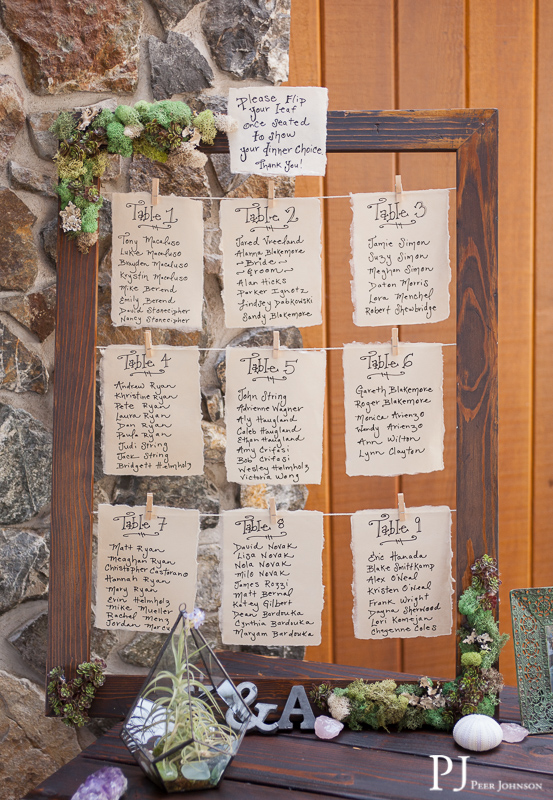 Please Flip
your Leaf
once seated
to show
your dinner choice
Thank You!
Table 1
Tony Macaluso
Luke Macaluso
Brayden Macaluso
Krystin Macaluso
Mike Berend
Emily Berend
David Stonecipher
Nancy Stonecipher
Table 2
Jared Vreeland
Alanna Blakemore
~Bride~
~Groom~
Alan Hicks
Parker Ignotz
Lindsey Dobkowski
Sandy Blakemore
Table 3
Jamie Simon
Suzy Simon
Meghan Simon
Daton Morris
Lora Menchel
Robert Shewbridge
Table 4
Andrew Ryan
Khristine Ryan
Pete Ryan
Laura Ryan
Dan Ryan
Paula Ryan
Judi String
Jack String
Bridgett Helmholz
Table 5
John String
Adrienne Wagner
Aly Haugland
Caleb Haugland
Ethan Haugland
Amy Crifasi
Bob Crifasi
Wesley Helmholz
Victoria Wong
Table 6
Gareth Blakemore
Roger Blakemore
Monica Arienzo
Wendy Arienzo
Ann Wilton
Lynn Clayton
Table 7
Matt Ryan
Meaghan Ryan
Christopher Castorano
Hannah Ryan
Mary Ryan
Erin Helmholz
Mike Mueller
Rachel Meng
Jordan
Table 8
David Novak
Lisa Novak
Nola Novak
Milo Novak
James Rozzi
Matt Bernal
Katey Gilbert
Dean Bardouka
Cynthia Bardouka
Maryam Bardouka
Table 9
Eric Hanada
Blake Smittkamp
Alex O'Neal
Kristen O'Neal
Frank Wright
Dayna Sherwood
Lori Komejan
Cheyenne Coles
& A
PJ PEER JOHNSON